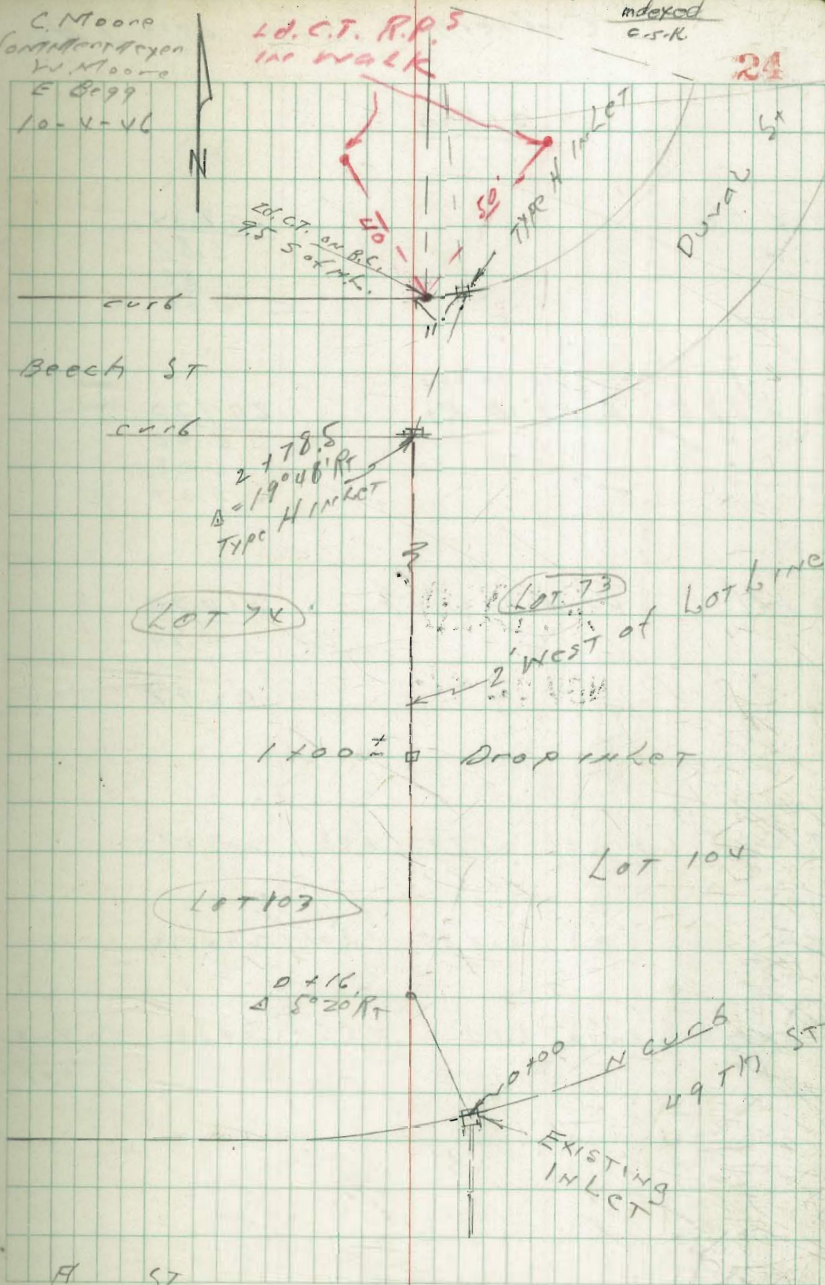 C. Moore
W. Moore
E Begg
10-4-46
N
Ld. C.T. R.P.s
in walk
indexed
c.s.k.
24
40
50'
TYPE H INLET
Duval St
Ld. C.T. on B.C.
9.5 S of
curb
11'
Beech ST
curb
2+78.5
Δ=19°48' RT
Type H INLET
LOT 74
LOT 73
2' WEST of LOT LINE
1+00 ± Drop inLeT
LOT 104
LOT 103
0+16
Δ 5°20' RT
0+00
N curb
49 TH ST
EXISTING
INLET
A ST